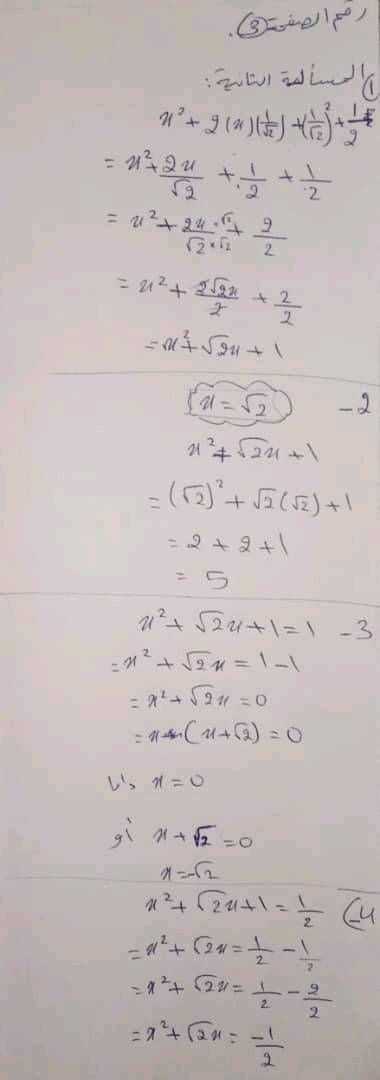 رقم الصفحة (3).
1) المسألة الثانية:
x² + 2(x)(1/√2) + (1/√2)² + 1/2
= x² + 2x/√2 + 1/2 + 1/2
= x² + 2x×√2/√2×√2 + 2/2
= x² + 2√2x/2 + 2/2
= x² + √2x + 1
2- x = √2
x² + √2x + 1
= (√2)² + √2(√2) + 1
= 2 + 2 + 1
= 5
3- x² + √2x + 1 = 1
= x² + √2x = 1 - 1
= x² + √2x = 0
= x(x + √2) = 0
إما x = 0
أو x + √2 = 0
x = -√2
4- x² + √2x + 1 = 1/2
= x² + √2x = 1/2 - 1
= x² + √2x = 1/2 - 2/2
= x² + √2x = -1/2